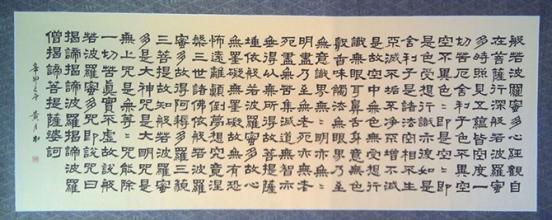 般若波羅蜜多心經觀自
在菩薩行深般若波羅蜜
多時照見五蘊皆空度一
切苦厄舍利子色不異空
空不異色〻即是空〻即
是色受想行識亦復如是
舍利子是諸法空相不生
不滅不垢不淨不增不減
是故空中無色無受想行
識無眼耳鼻舌身意無色
聲香味觸法無眼界乃至
無意識界無〻明亦無〻
明盡乃至無老死亦無老
死盡無苦集滅道無智亦
無得以無所得故菩提薩
埵依般若波羅蜜多故心
無罣礙無罣礙故無有恐
怖遠離顛倒夢想究竟涅
槃三世諸佛依般若波羅
蜜多故得阿耨多羅三藐
三菩提故知般若波羅蜜
多是大神咒是大明咒是
無上咒是無等〻咒能除
一切苦真實不虛故說般
若波羅蜜多咒即說咒曰
揭諦揭諦波羅揭諦波羅
僧揭諦菩提薩婆訶
辛卯